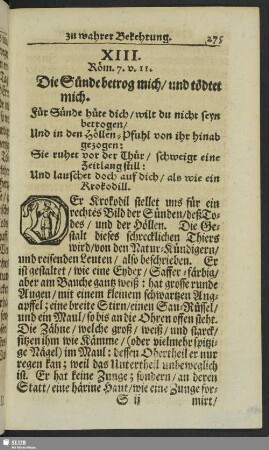 zu wahrer Bekehrung. 275
XIII.
Röm. 7. v. 11.
Die Sünde betrog mich/ und tödtet
mich.
Für Sünde hüte dich/ wilt du nicht seyn
betrogen/
Und in den Höllen-Pfuhl von ihr hinab
gezogen:
Sie ruhet vor der Thür/ schweigt eine
Zeitlang still:
Und lauschet doch auf dich/ als wie ein
Krokodill.
DEr Krokodil stellet uns für ein
rechtes Bild der Sünden/ deß To-
des/ und der Höllen. Die Ge-
stalt dieses schrecklichen Thiers
wird/ von den Natur-Kündigern/
und reisenden Leuten/ also beschrieben. Er
ist gestaltet/ wie eine Eyder/ Saffer-färbig/
aber am Bauche gantz weiß: hat grosse runde
Augen/ mit einem kleinem schwartzen Ang-
apffel: eine breite Stirn/ einen Sau-Rüssel/
und ein Maul/ so bis an die Ohren offen steht.
Die Zähne/ welche groß/ weiß/ und starck/
sitzen ihm wie Kämme/ (oder vielmehr spitzi-
ge Nägel) im Maul: dessen Obertheil er nur
regen kan; weil das Untertheil unbeweglich
ist. Er hat keine Zunge; sondern/ an deren
Statt/ eine härine Haut/ wie eine Zunge for-
S ij mirt/
SLUB